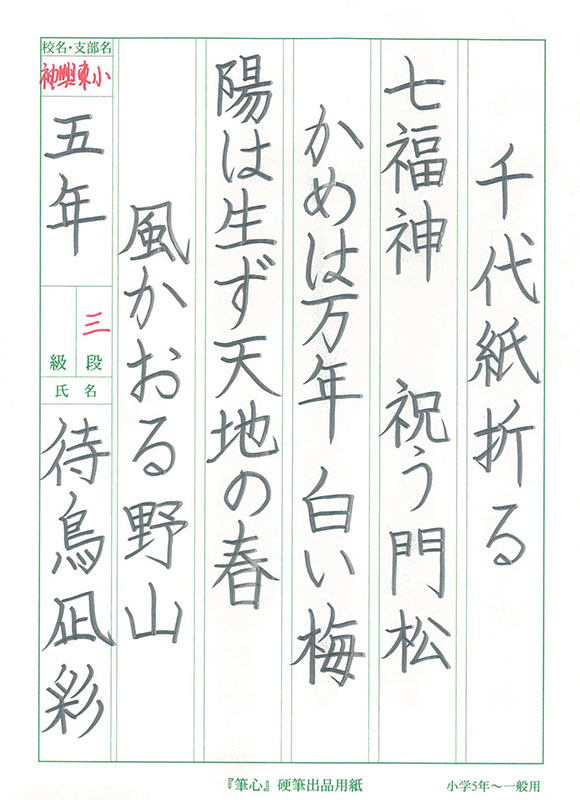 千代紙折る
七福神 祝う門松
かめは万年 白い梅
陽は生ず天地の春
風かおる野山
校名・支部名
神興東小
五年
三段
級
氏名
待鳥凪彩
『筆心』硬筆出品用紙
小学5年～一般用